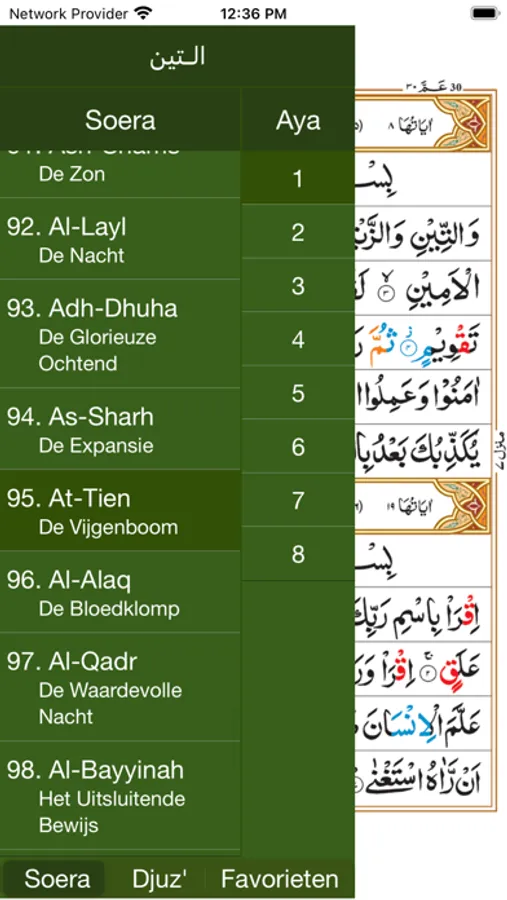 Network Provider 12:36 PM
الـتين
Soera Aya
De Zon
92. Al-Layl
De Nacht
93. Adh-Dhuha
De Glorieuze
Ochtend
94. As-Sharh
De Expansie
95. At-Tien
De Vijgenboom
96. Al-Alaq
De Bloedklomp
97. Al-Qadr
De Waardevolle
Nacht
98. Al-Bayyinah
Het Uitsluitende
Bewijs
1
2
3
4
5
6
7
8
Soera Djuz' Favorieten
٣٠ عَـمَّ 30
اٰیَاتُهَا ٨
وَالتِّيْنِ
الْاَمِيْنِ ٣
تَقْوِيْمٍ ٤ ثُمَّ
اٰمَنُوْا وَعَمِلُوا
يُكَذِّبُكَ بَعْدُ
منزل ٧
اٰیَاتُهَا ١٩
اِقْرَاْ بِاسْمِ رَبِّكَ
عَلَقٍ ٢ اِقْرَاْ
عَلَّمَ الْاِنْسَانَ
اَنْ رَّاٰهُ اسْتَغْنٰى